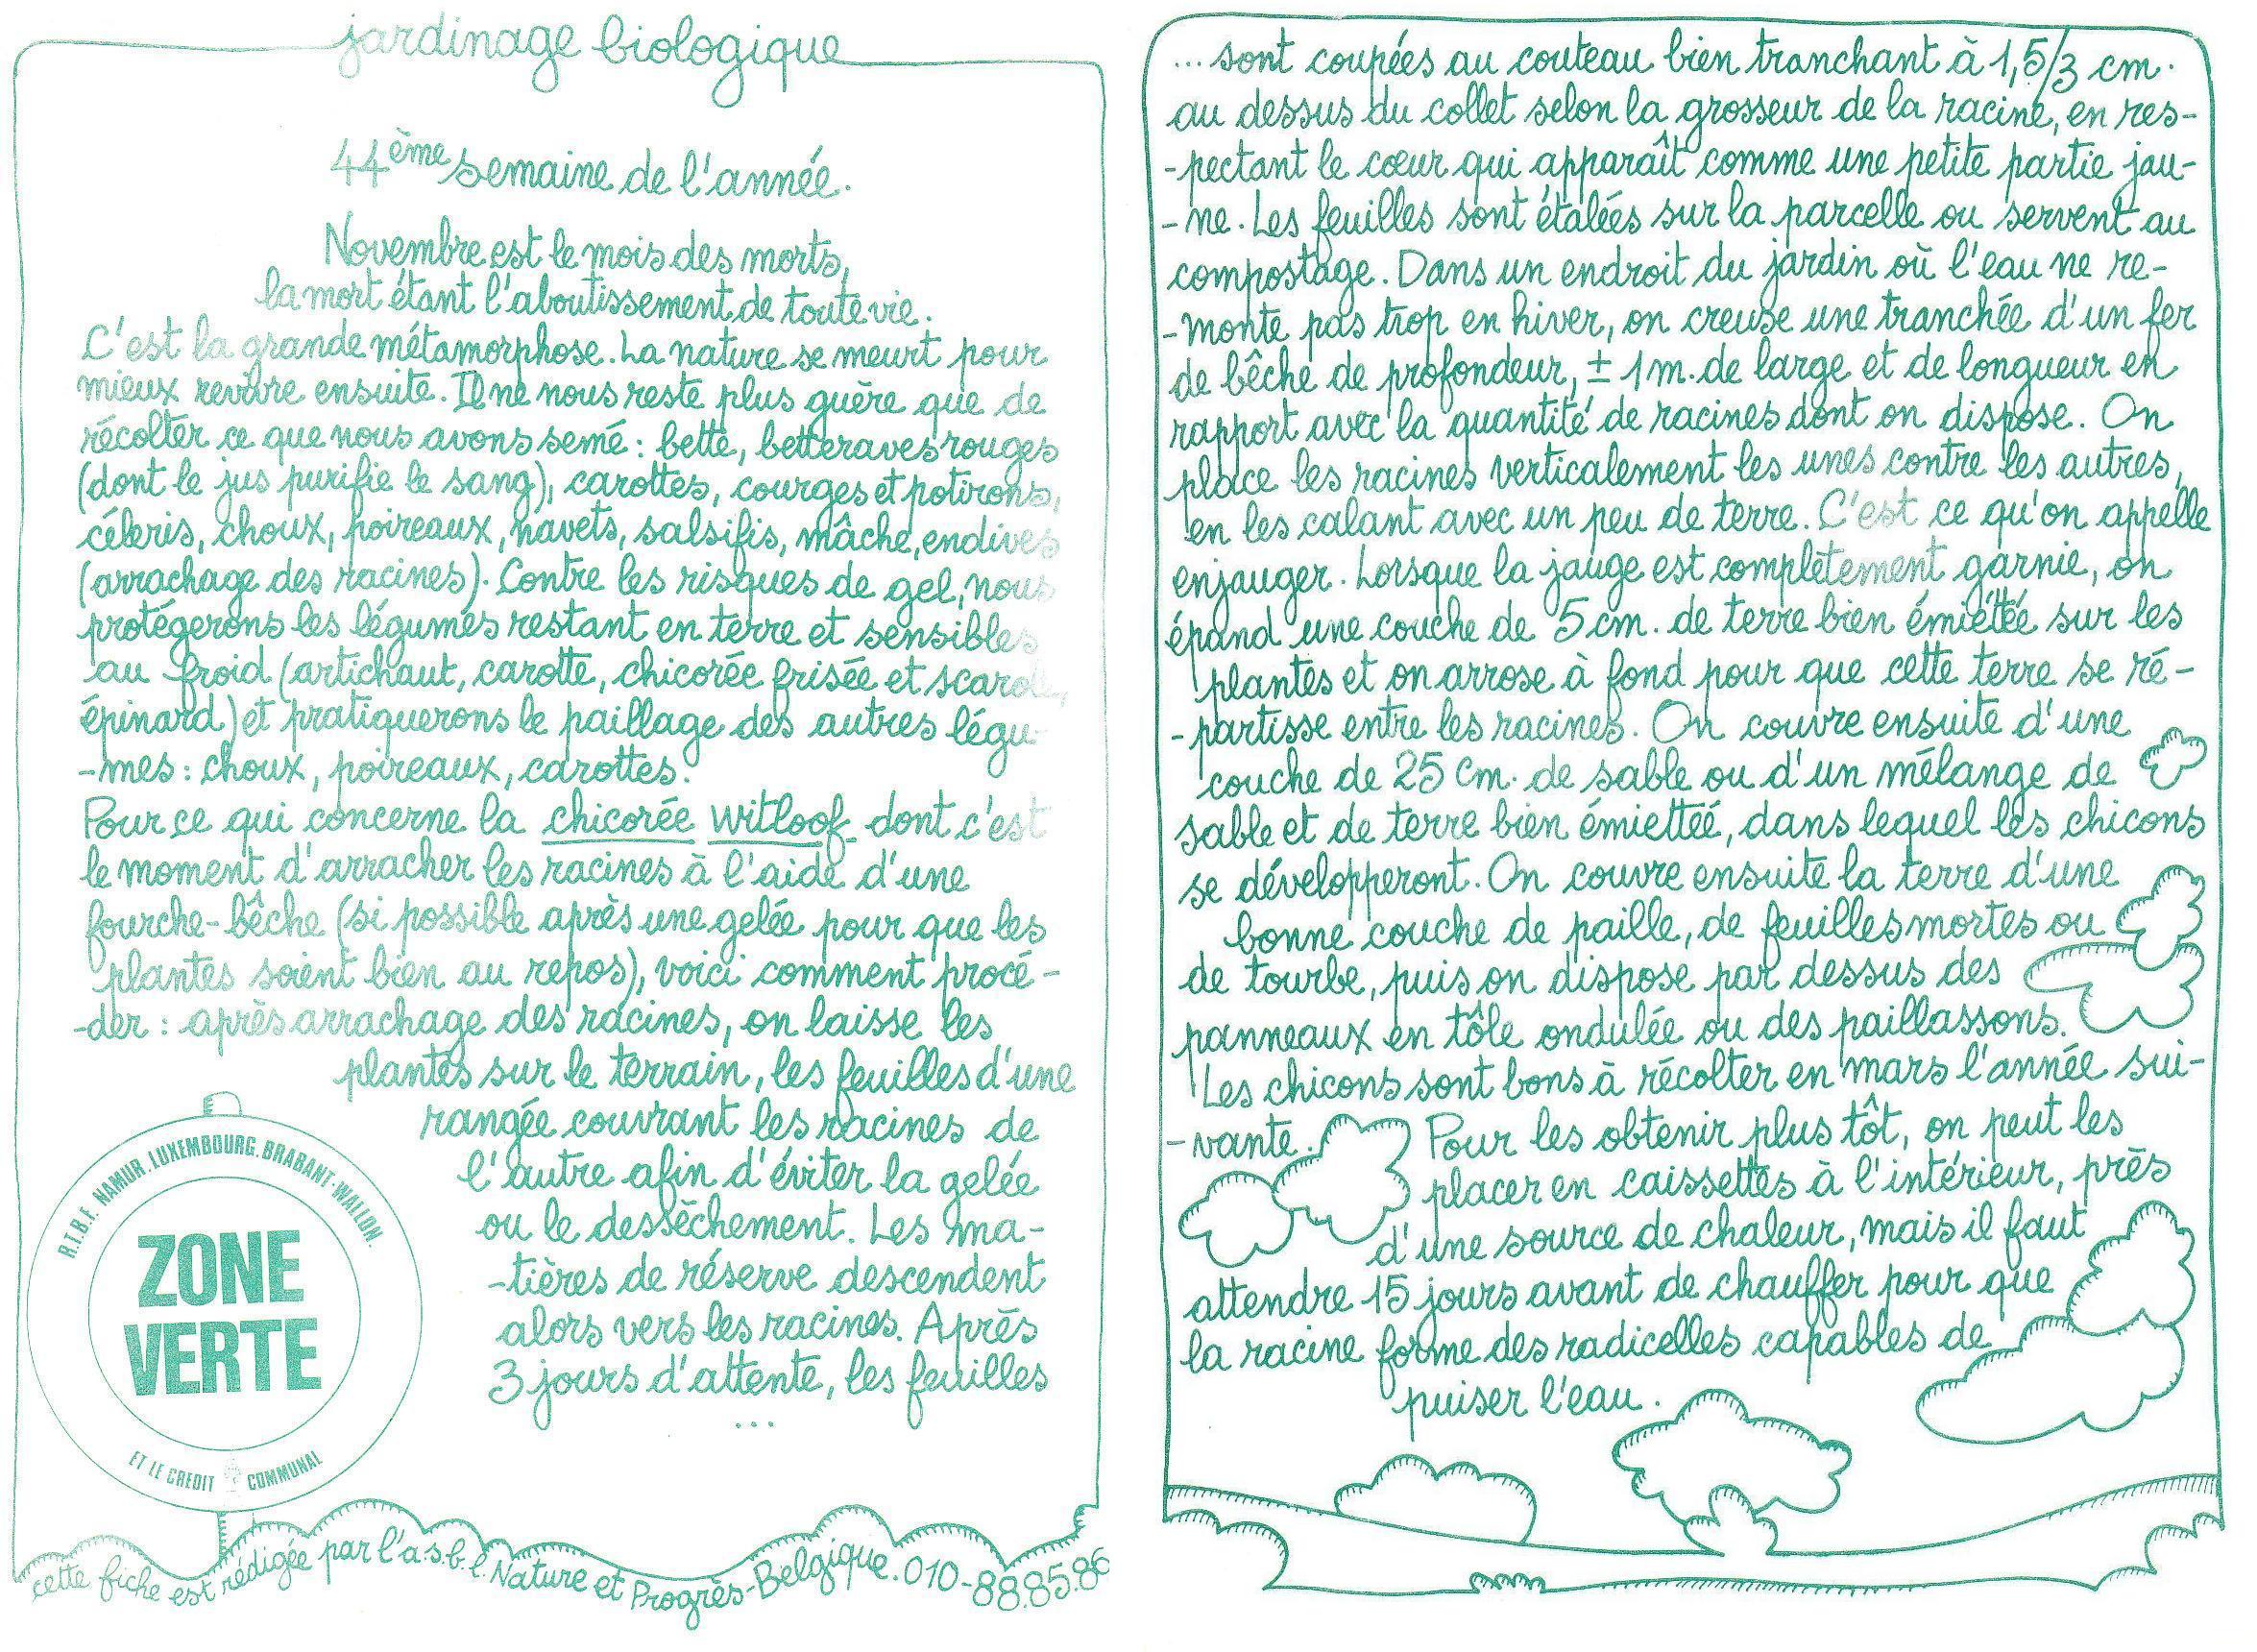 jardinage biologique
44ème semaine de l'année.
Novembre est le mois des morts,
la mort étant l'aboutissement de toute vie.
C'est la grande métamorphose. La nature se meurt pour
mieux revivre ensuite. Il ne nous reste plus guère que de
récolter ce que nous avons semé : bette, betteraves rouges
(dont le jus purifie le sang), carottes, courges et potirons,
céleris, choux, poireaux, navets, salsifis, mâche, endives
(arrachage des racines). Contre les risques de gel, nous
protégerons les légumes restant en terre et sensibles
au froid (artichaut, carotte, chicorée frisée et scarole,
épinard) et pratiquerons le paillage des autres légu-
-mes : choux, poireaux, carottes.
Pour ce qui concerne la chicorée witloof dont c'est
le moment d'arracher les racines à l'aide d'une
fourche-bêche (si possible après une gelée pour que les
plantes soient bien au repos), voici comment procé-
-der : après arrachage des racines, on laisse les
plantes sur le terrain, les feuilles d'une
rangée couvrant les racines de
l'autre afin d'éviter la gelée
ou le dessèchement. Les ma-
-tières de réserve descendent
alors vers les racines. Après
3 jours d'attente, les feuilles
...
R.T.B.F. NAMUR. LUXEMBOURG. BRABANT-WALLON.
ZONE
VERTE
ET LE CREDIT COMMUNAL
cette fiche est rédigée par l'a.s.b.l. Nature et Progrès-Belgique. 010-88.85.86
... sont coupées au couteau bien tranchant à 1,5/3 cm.
au dessus du collet selon la grosseur de la racine, en res-
-pectant le cœur qui apparaît comme une petite partie jau-
-ne. Les feuilles sont étalées sur la parcelle ou servent au
compostage. Dans un endroit du jardin où l'eau ne re-
-monte pas trop en hiver, on creuse une tranchée d'un fer
de bêche de profondeur, ± 1m. de large et de longueur en
rapport avec la quantité de racines dont on dispose. On
place les racines verticalement les unes contre les autres,
en les calant avec un peu de terre. C'est ce qu'on appelle
enjauger. Lorsque la jauge est complètement garnie, on
épand une couche de 5 cm. de terre bien émiettée sur les
plantes et on arrose à fond pour que cette terre se ré-
-partisse entre les racines. On couvre ensuite d'une
couche de 25 cm. de sable ou d'un mélange de
sable et de terre bien émiettée, dans lequel les chicons
se développeront. On couvre ensuite la terre d'une
bonne couche de paille, de feuilles mortes ou
de tourbe, puis on dispose par dessus des
panneaux en tôle ondulée ou des paillassons.
Les chicons sont bons à récolter en mars l'année sui-
-vante. Pour les obtenir plus tôt, on peut les
placer en caissettes à l'intérieur, près
d'une source de chaleur, mais il faut
attendre 15 jours avant de chauffer pour que
la racine forme des radicelles capables de
puiser l'eau.